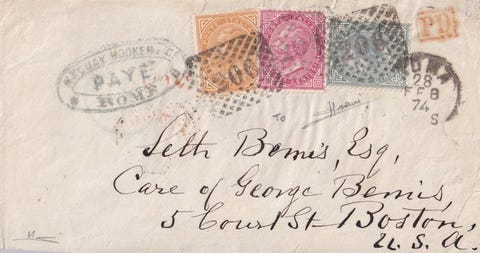 MAQUAY HOOKER & Co
PAYÉ
ROME
206
206
206
P.D.
ROMA
28
FEB
74
S
To
Seth Bemis, Esq,
Care of George Bemis,
5 Court St. Boston,
U. S. A.